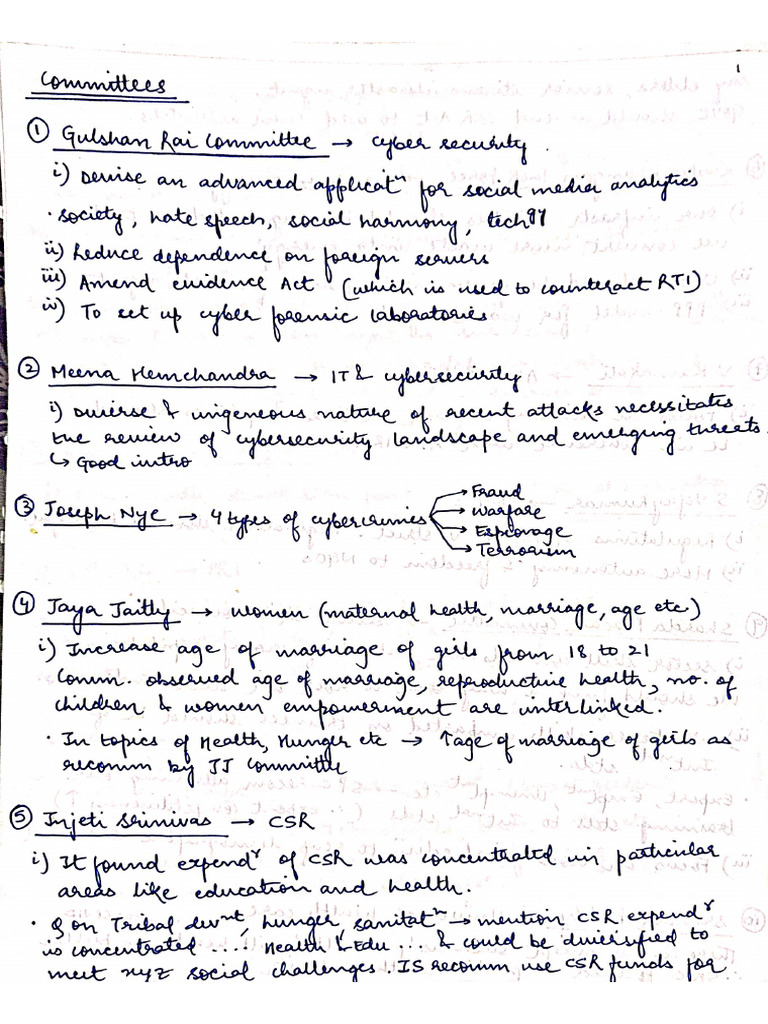 1
Committees
① Gulshan Rai Committee → cyber security.
i) Devise an advanced applicatⁿ for social media analytics
· society, hate speech, social harmony, tech
ii) Reduce dependence on foreign servers
iii) Amend evidence Act (which is used to counteract RTI)
iv) To set up cyber forensic laboratories
② Meena Hemchandra → IT & cybersecurity
i) Diverse & ingeneous nature of recent attacks necessitates
the review of cybersecurity landscape and emerging threats.
↳ Good intro
③ Joseph Nye → 4 types of cybercrimes → Fraud
→ Warfare
→ Espionage
→ Terrorism
④ Jaya Jaitly → women (maternal health, marriage, age etc)
i) Increase age of marriage of girls from 18 to 21
Comm. observed age of marriage, reproductive health, no. of
children & women empowerment are interlinked.
· In topics of Health, Hunger etc → ↑ age of marriage of girls as
recomm by JJ Committee
⑤ Injeti Srinivas → CSR
i) It found expendʳ of CSR was concentrated in particular
areas like education and health.
· Q on Tribal devᵐⁿᵗ, hunger, sanitatⁿ → mention CSR expendʳ
is concentrated .... Health & Edu ... & could be diversified to
meet xyz social challenges. IS recomm use CSR funds for